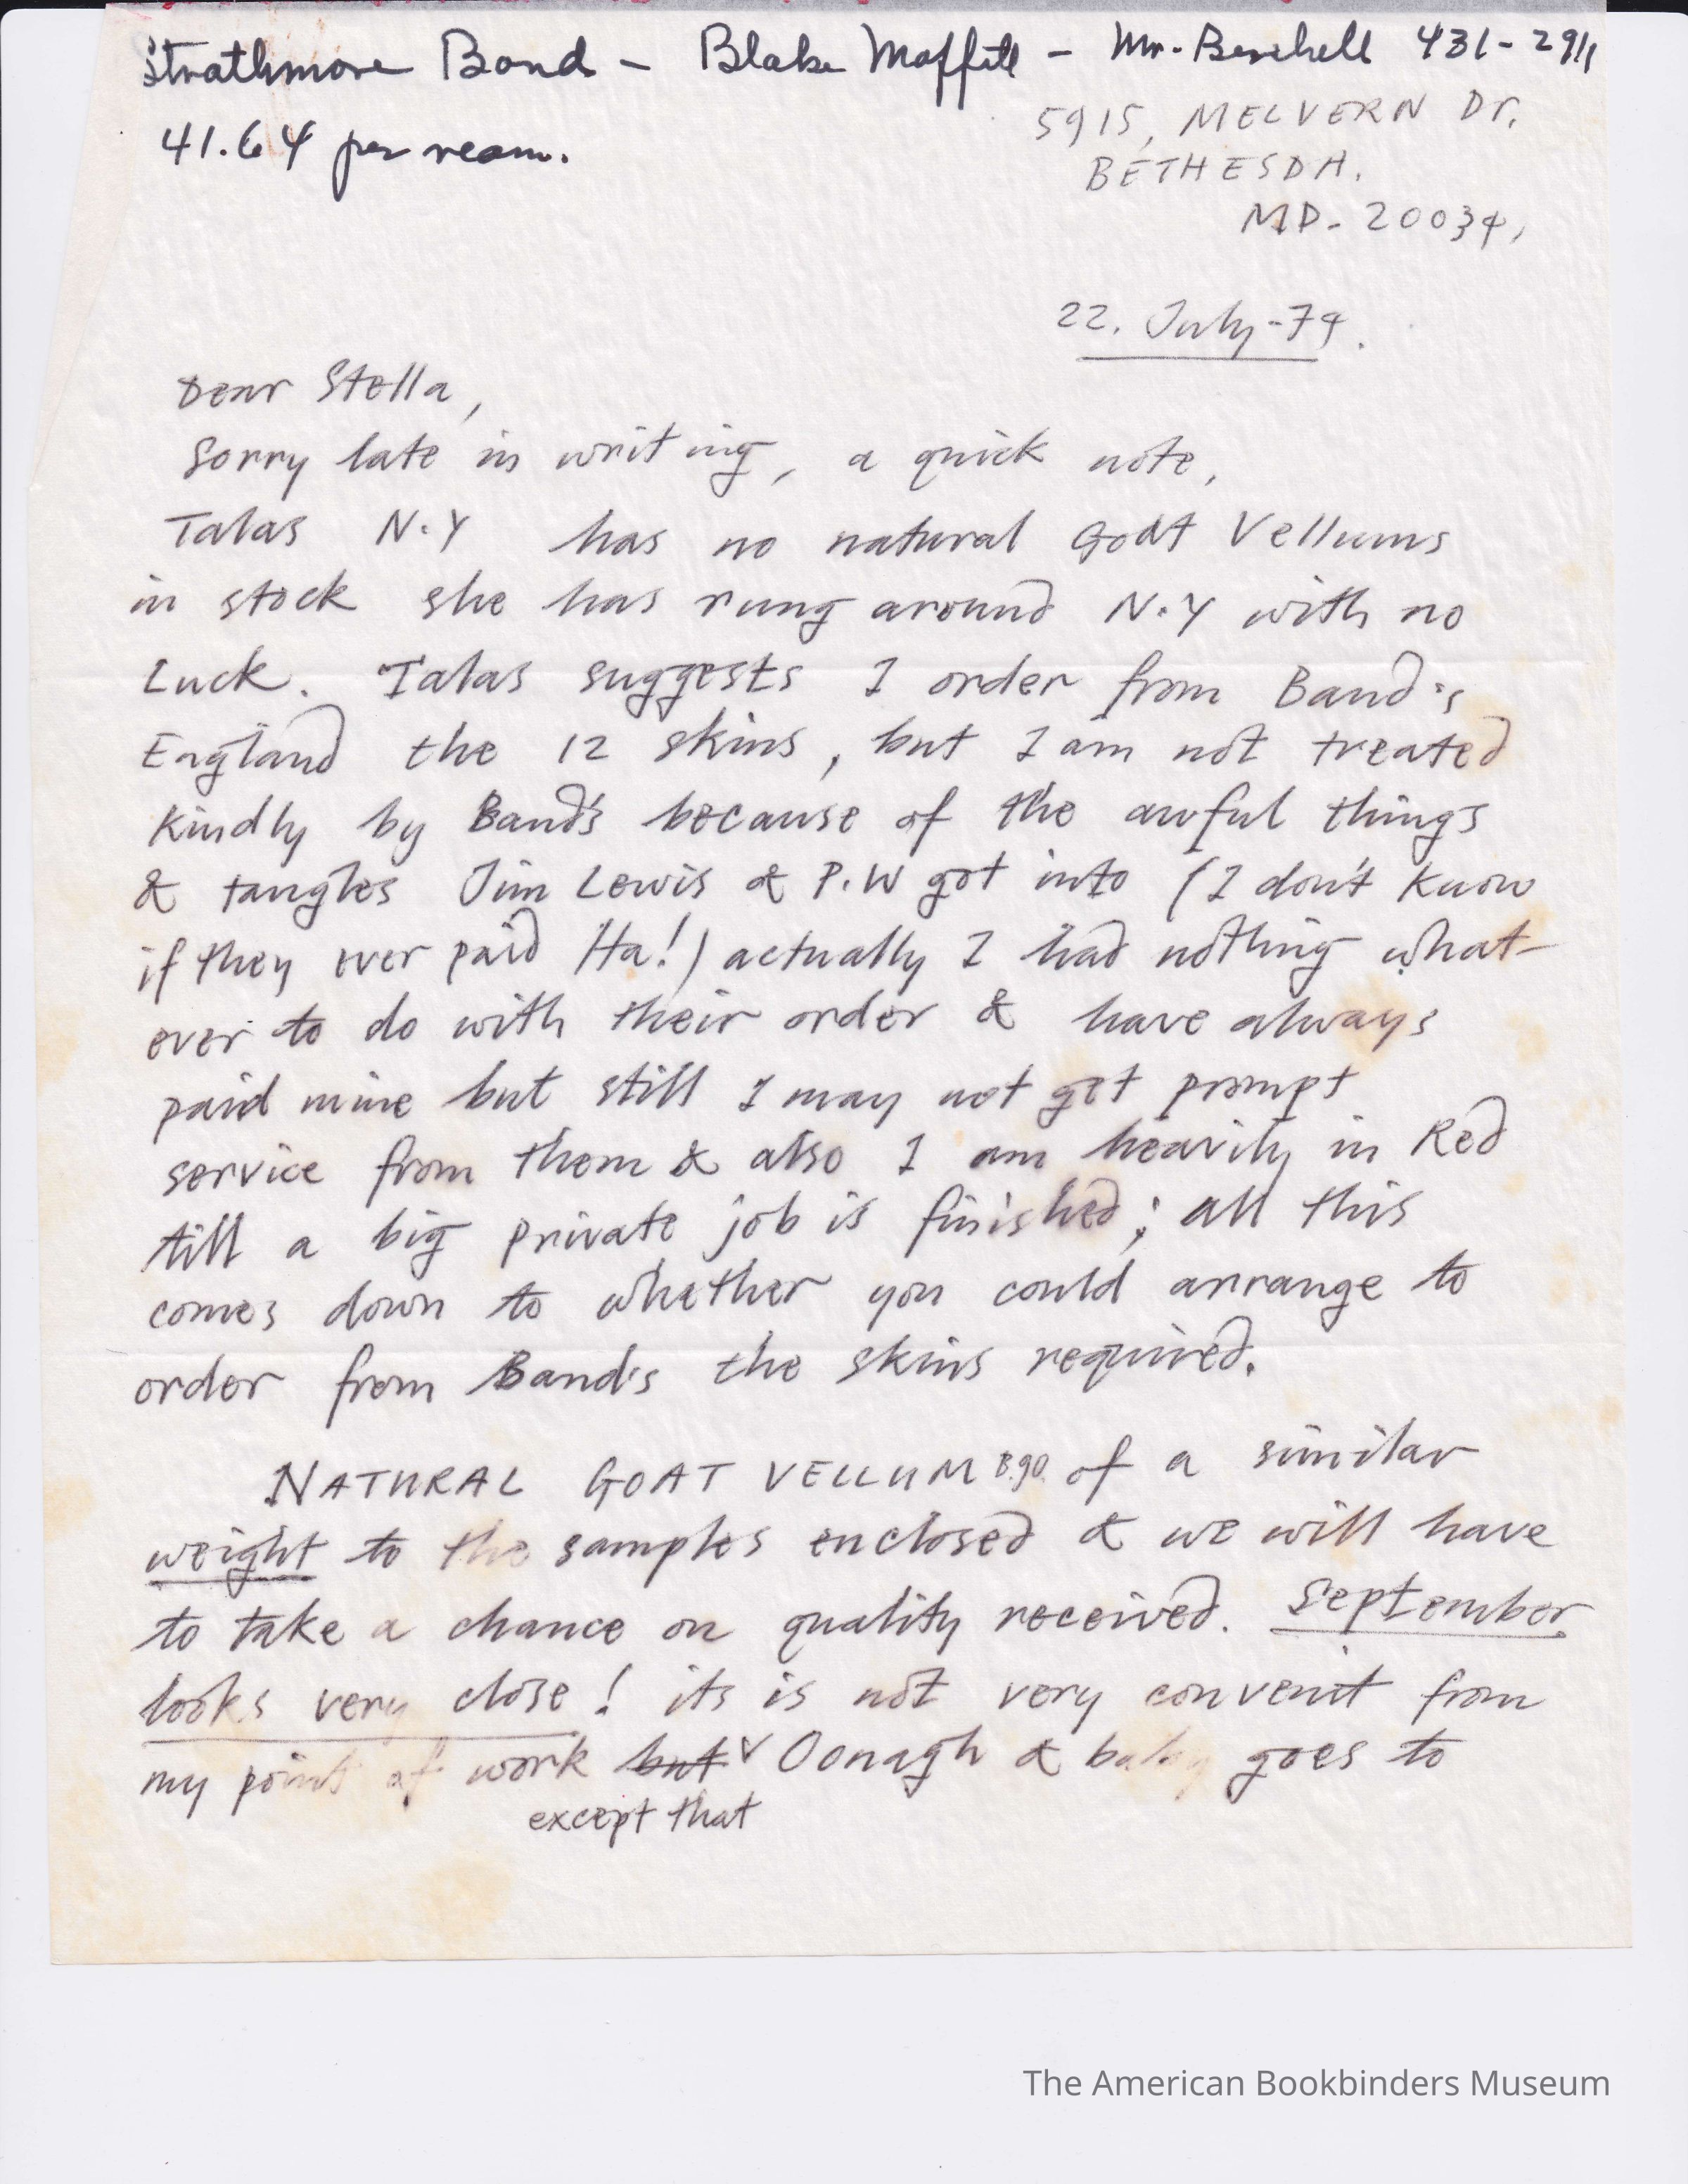 Strathmore Bond - Blake Moffitt - Mr. 431-2911
41.64 per ream.
5915, MELVERN Dr.
BETHESDA.
MD. 20034,
22. July-74.
Dear Stella,
Sorry late in writing, a quick note,
Talas N.Y has no natural Goat Vellums
in stock she has rung around N.Y with no
Luck. Talas suggests I order from Band's
England the 12 skins, but I am not treated
kindly by Band's because of the awful things
& tangles Jim Lewis & P.W got into (I don't know
if they ever paid Ha!) actually I had nothing what-
ever to do with their order & have always
paid mine but still I may not get prompt
service from them & also I am heavily in Red
till a big private job is finished; all this
comes down to whether you could arrange to
order from Band's the skins required.
NATURAL GOAT VELLUM of a similar
weight to the samples enclosed & we will have
to take a chance on quality received. September
looks very close! its is not very convenit from
my point of work but ∨ Oonagh & baby goes to
except that
The American Bookbinders Museum